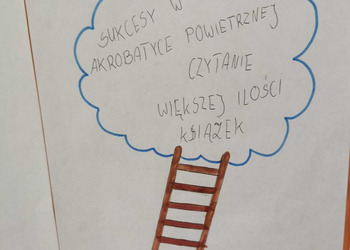 SUKCESY W
AKROBATYCE POWIETRZNEJ
CZYTANIE
WIĘKSZEJ ILOŚCI
KSIĄŻEK